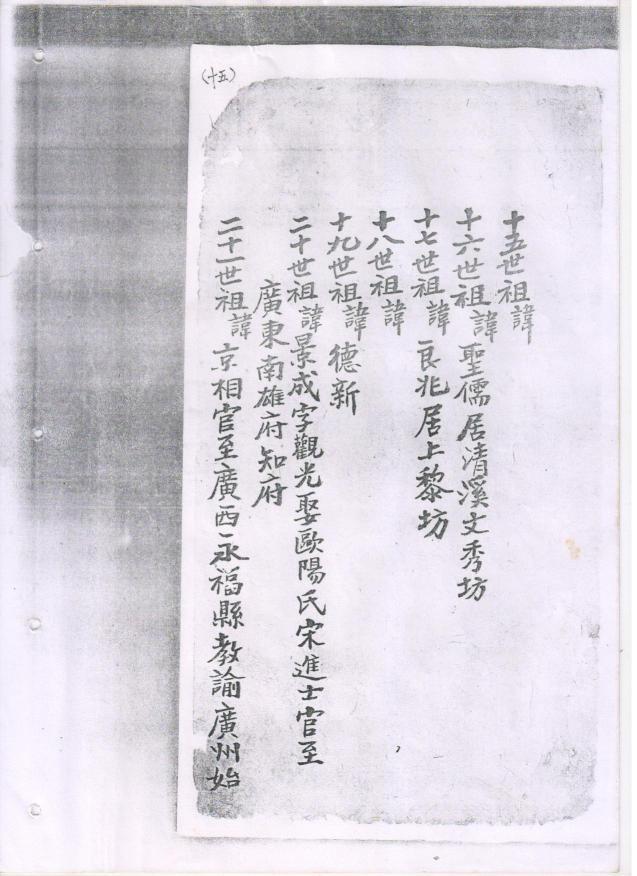 (十五)
十五世祖諱
十六世祖諱聖儒居清溪文秀坊
十七世祖諱良兆居上黎坊
十八世祖諱
十九世祖諱德新
二十世祖諱景成字觀光娶歐陽氏宋進士官至
廣東南雄府知府
二十一世祖諱京相官至廣西永福縣教諭廣州始